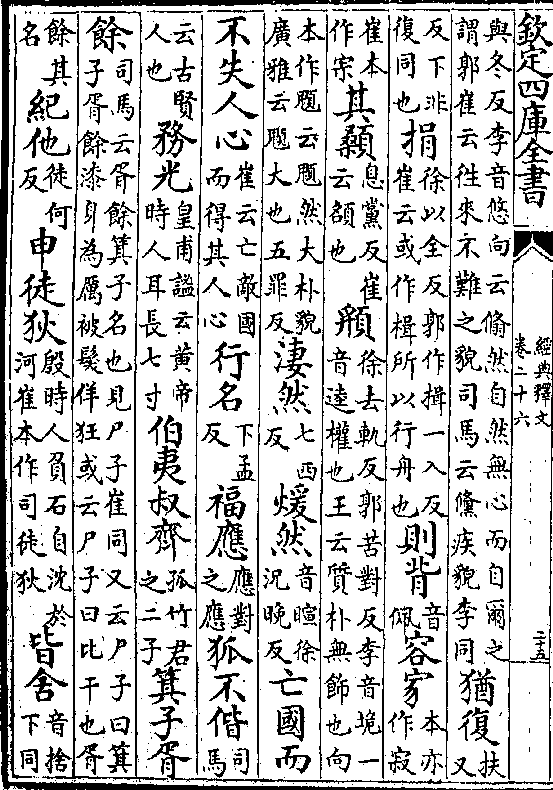 欽定四庫全書
經典釋文
卷二十六
二十五
與冬反李音悠向云翛然自然無心而自爾之謂郭崔云往來不難之貌司馬云儵疾貌李同猶復扶又
反下非復同也捐徐以全反郭作揖一入反崔云或作楫所以行舟也則背音佩容家本亦作寂
崔本作宗其顙息黨反崔云額也頯徐去軌反郭苦對反李音垝一音逵權也王云質朴無飾也向
本作䫥云䫥然大朴貌廣雅云䫥大也五罪反淒然七西反煖然音暄徐況晚反亡國而
不失人心崔云亡敵國而得其人心行名下孟反福應應對之應狐不偕司馬
云古賢人也務光皇甫謐云黄帝時人耳長七寸伯夷叔齊孤竹君之二子箕子胥
餘司馬云胥餘箕子名也見尸子崔同又云尸子曰箕子胥餘漆身為厲被髪佯狂或云尸子曰比干也胥
餘其名紀他徒何反申徒狄殷時人負石自沈於河崔本作司徒狄皆舍音捨下同